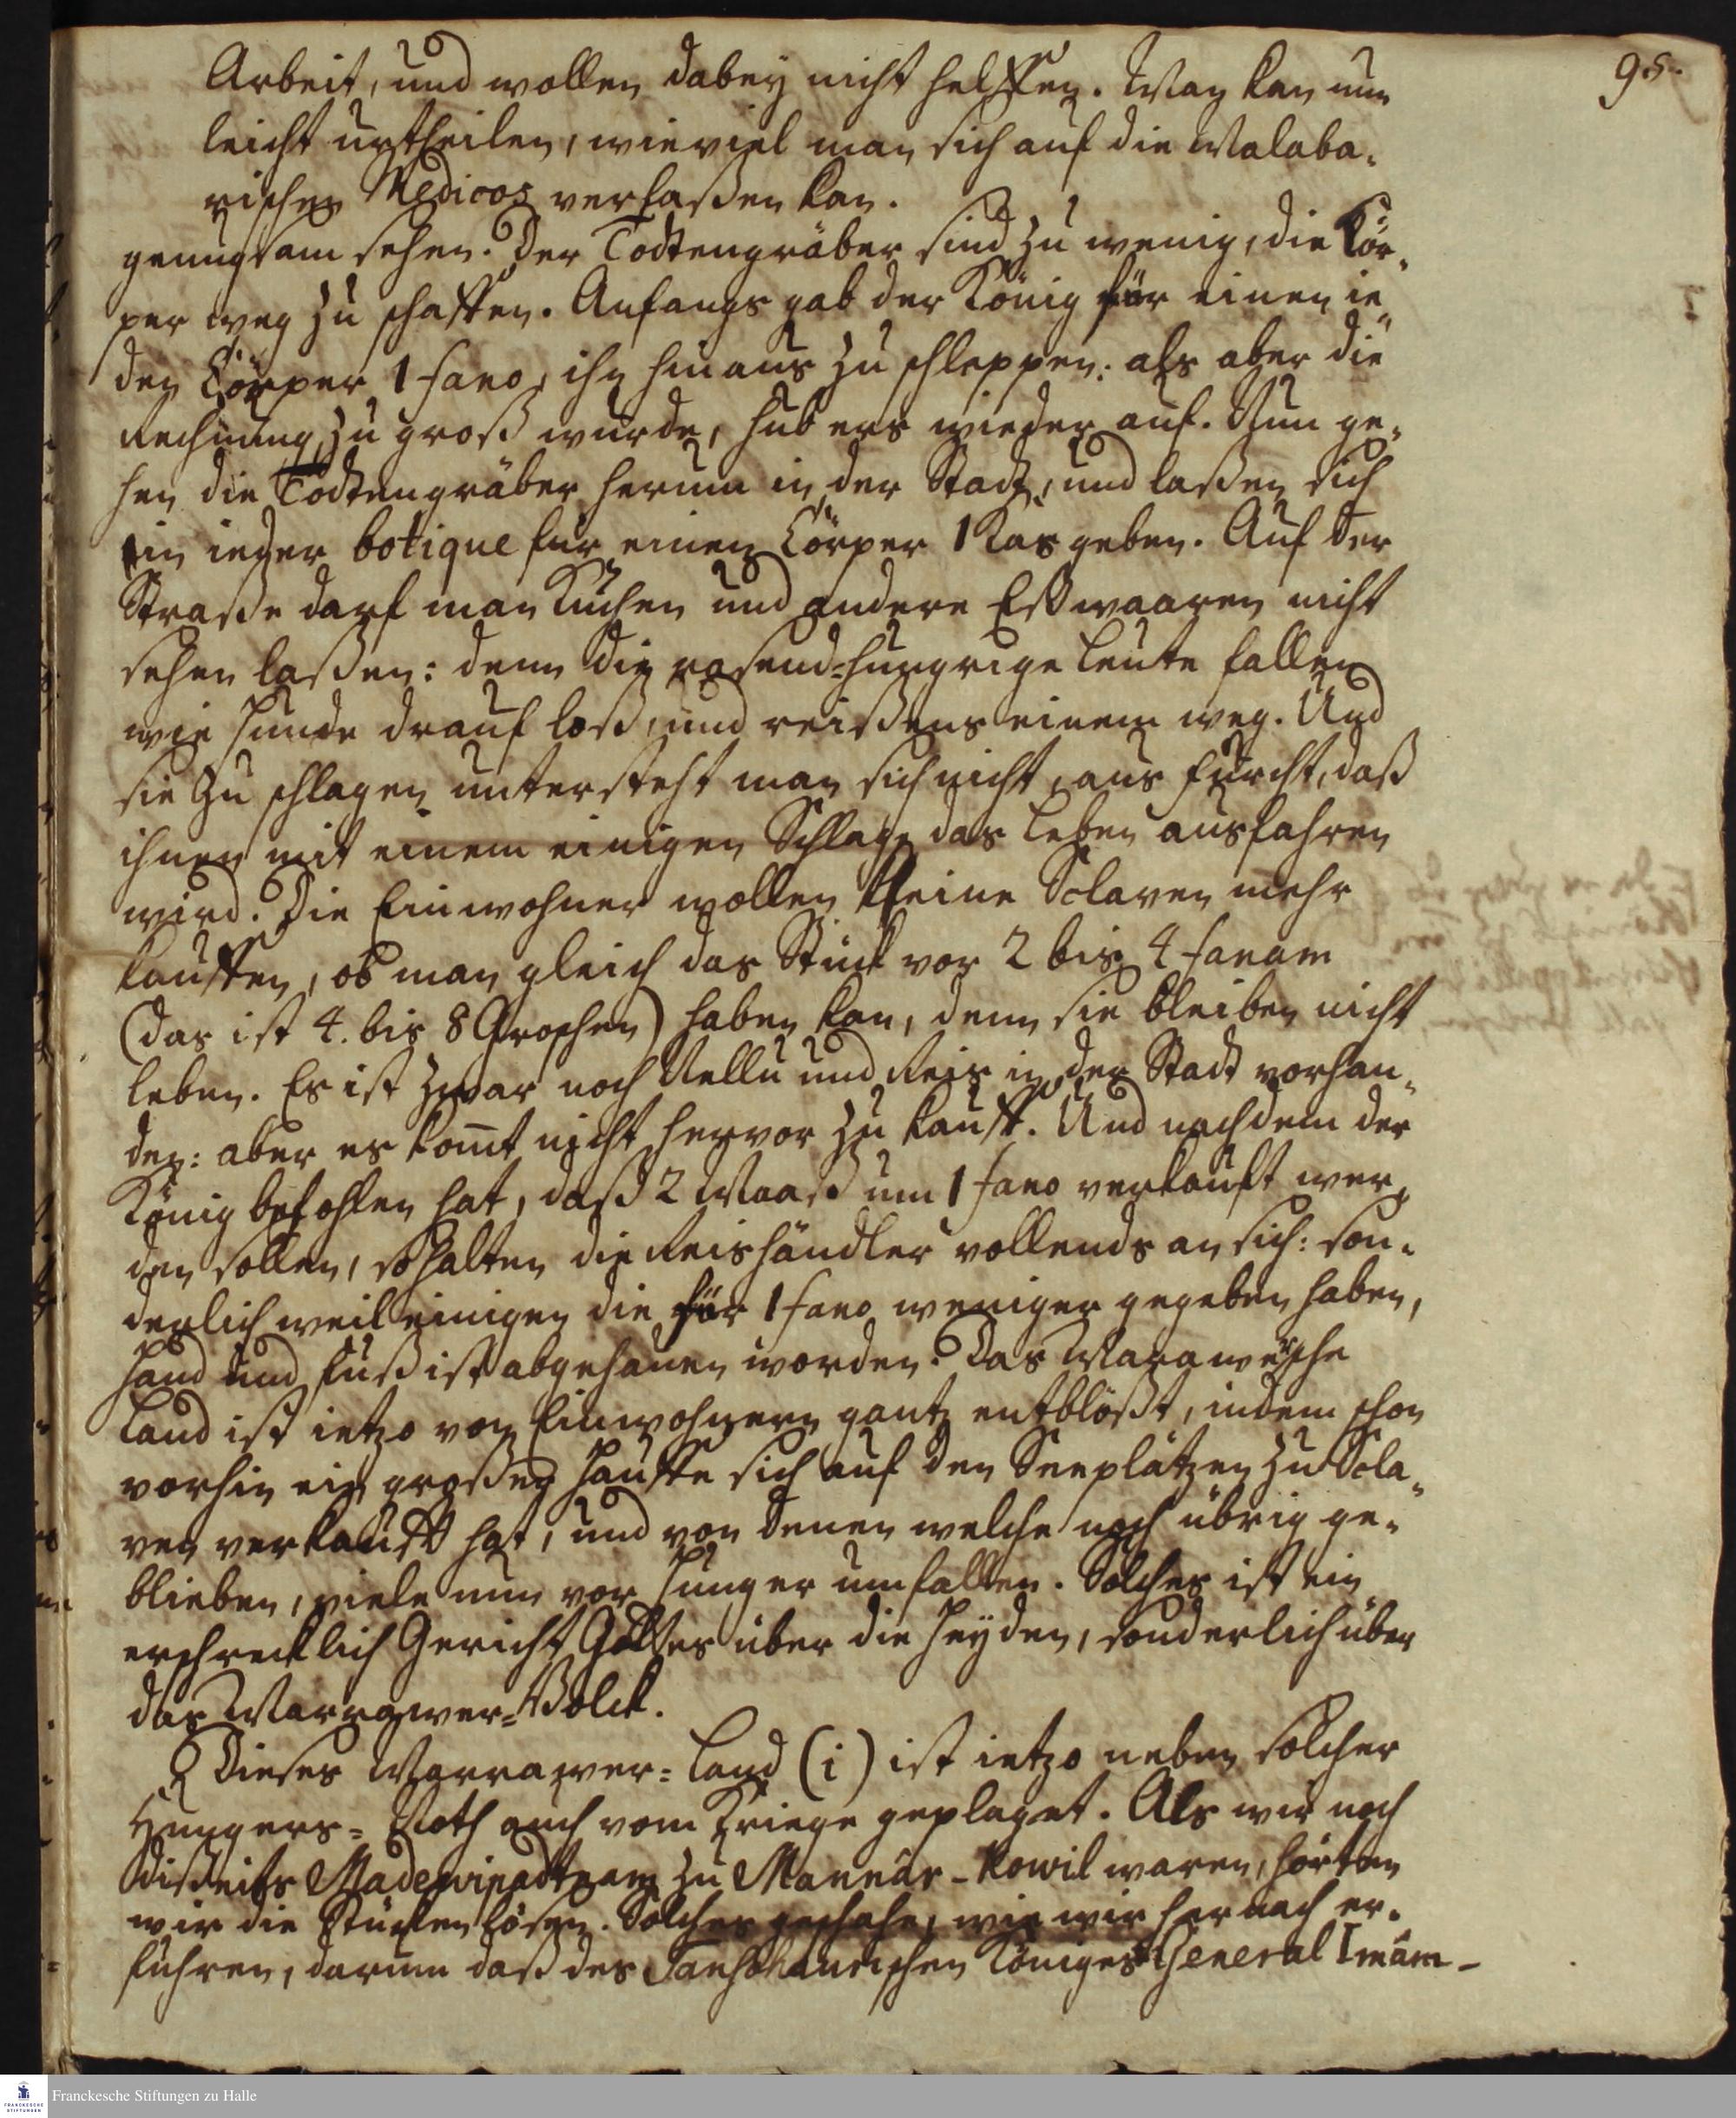 95.
Arbeit, und wollen dabey nicht helffen. Man kan nun
leicht urtheilen, wieviel man sich auf die Malaba-
rischen Medicos verlaßen kan.
genugsam sehen. Der Todtengräber sind zu wenig, die Kör-
per weg zu schaffen. Anfangs gab der König für einen ie-
den Cörper 1 fano, ihn hinaus zu schleppen: als aber die
Rechnung zu groß wurde, hub ers wieder auf. Nun ge-
hen die Todtengräber herum in der Stadt, und laßen sich
in ieder botique für einen Cörper 1 Kas geben. Auf der
Straße darf man Kuchen und andere Eßwaaren nicht
sehen laßen: denn die rasend-hungrige Leute fallen
wie Hunde drauf loß, und reißens einem weg. Und
sie zu schlagen untersteht man sich nicht, aus Furcht, daß
ihnen mit einem einigen Schlage das Leben ausfahren
wird. Die Einwohner wollen keine Sclaven mehr
kauffen, ob man gleich das Stück vor 2 bis 4 fanam
(das ist 4. bis 8 Groschen) haben kan, denn sie bleiben nicht
leben. Es ist zwar noch Nellu und Reis in der Stadt vorhan-
den: aber es kom̅t nicht hervor zu kauff. Und nachdem der
König befohlen hat, daß 2 Maaß um 1 fano verkauft wer-
den sollen, so halten die Reishändler vollends an sich: son-
derlich weil einigen die für 1 fano weniger gegeben haben,
Hand und Fuß ist abgehauen worden. Das Marawersche
Land ist ietzo von Einwohnern gantz entblößt, indem schon
vorhin ein großer Hauffe sich auf den Seeplätzen zu Scla-
ven verkaufft hat, und von denen welche noch übrig ge-
blieben, viele nun vor Hunger umfallen. Solches ist ein
erschrecklich Gericht Gottes über die Heyden, sonderlich über
das Marrawer-Volck.
Dieses Marrawer-Land (i) ist ietzo neben solcher
Hungers-Noth auch vom Kriege geplaget. Als wir noch
dißeits Madewipadtnam zu Mannár-Kowil waren, hörten
wir die Stücken lösen. Solches geschahe, wie wir hernach er-
fuhren, darum daß des Tanschaurischen Königes General Imâm-
Franckesche Stiftungen zu Halle